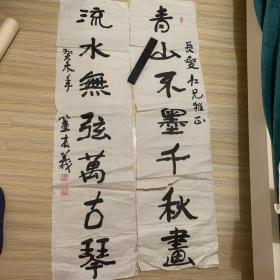 青山不墨千秋畫
長髮仁兄雅正
流水無弦萬古琴
癸未年